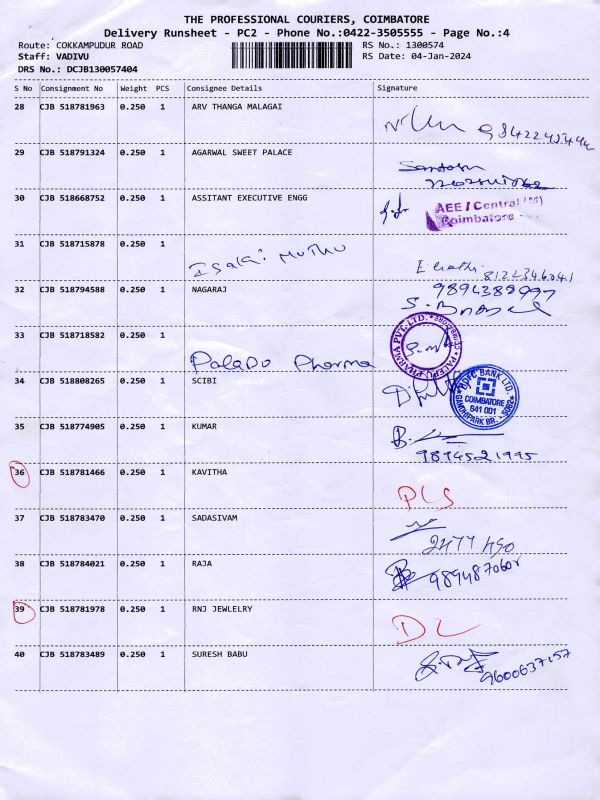 THE PROFESSIONAL COURIERS, COIMBATORE
Delivery Runsheet - PC2 - Phone No.:0422-3505555 - Page No.:4
Route: COKKAMPUDUR ROAD RS No.: 1300574
Staff: VADIVU RS Date: 04-Jan-2024
DRS No.: DCJB130057404
S No Consignment No Weight PCS Consignee Details Signature
28 CJB 518781963 0.250 1 ARV THANGA MALAGAI
29 CJB 518791324 0.250 1 AGARWAL SWEET PALACE
Santosh
30 CJB 518668752 0.250 1 ASSITANT EXECUTIVE ENGG
AEE / Central
Coimbatore
31 CJB 518715878 0.250 1
Isakki Muthu
8122346041
32 CJB 518794588 0.250 1 NAGARAJ 9894388997
33 CJB 518718582 0.250 1
PHARMA PVT. LTD.
Pharma
34 CJB 518808265 0.250 1 SCIBI
HDFC BANK LTD.
COIMBATORE
641 001
35 CJB 518774905 0.250 1 KUMAR
9894521995
36 CJB 518781466 0.250 1 KAVITHA
DLS
37 CJB 518783470 0.250 1 SADASIVAM
2477 490
38 CJB 518784021 0.250 1 RAJA
39 CJB 518781978 0.250 1 RNJ JEWLELRY
DL
40 CJB 518783489 0.250 1 SURESH BABU
9600637157